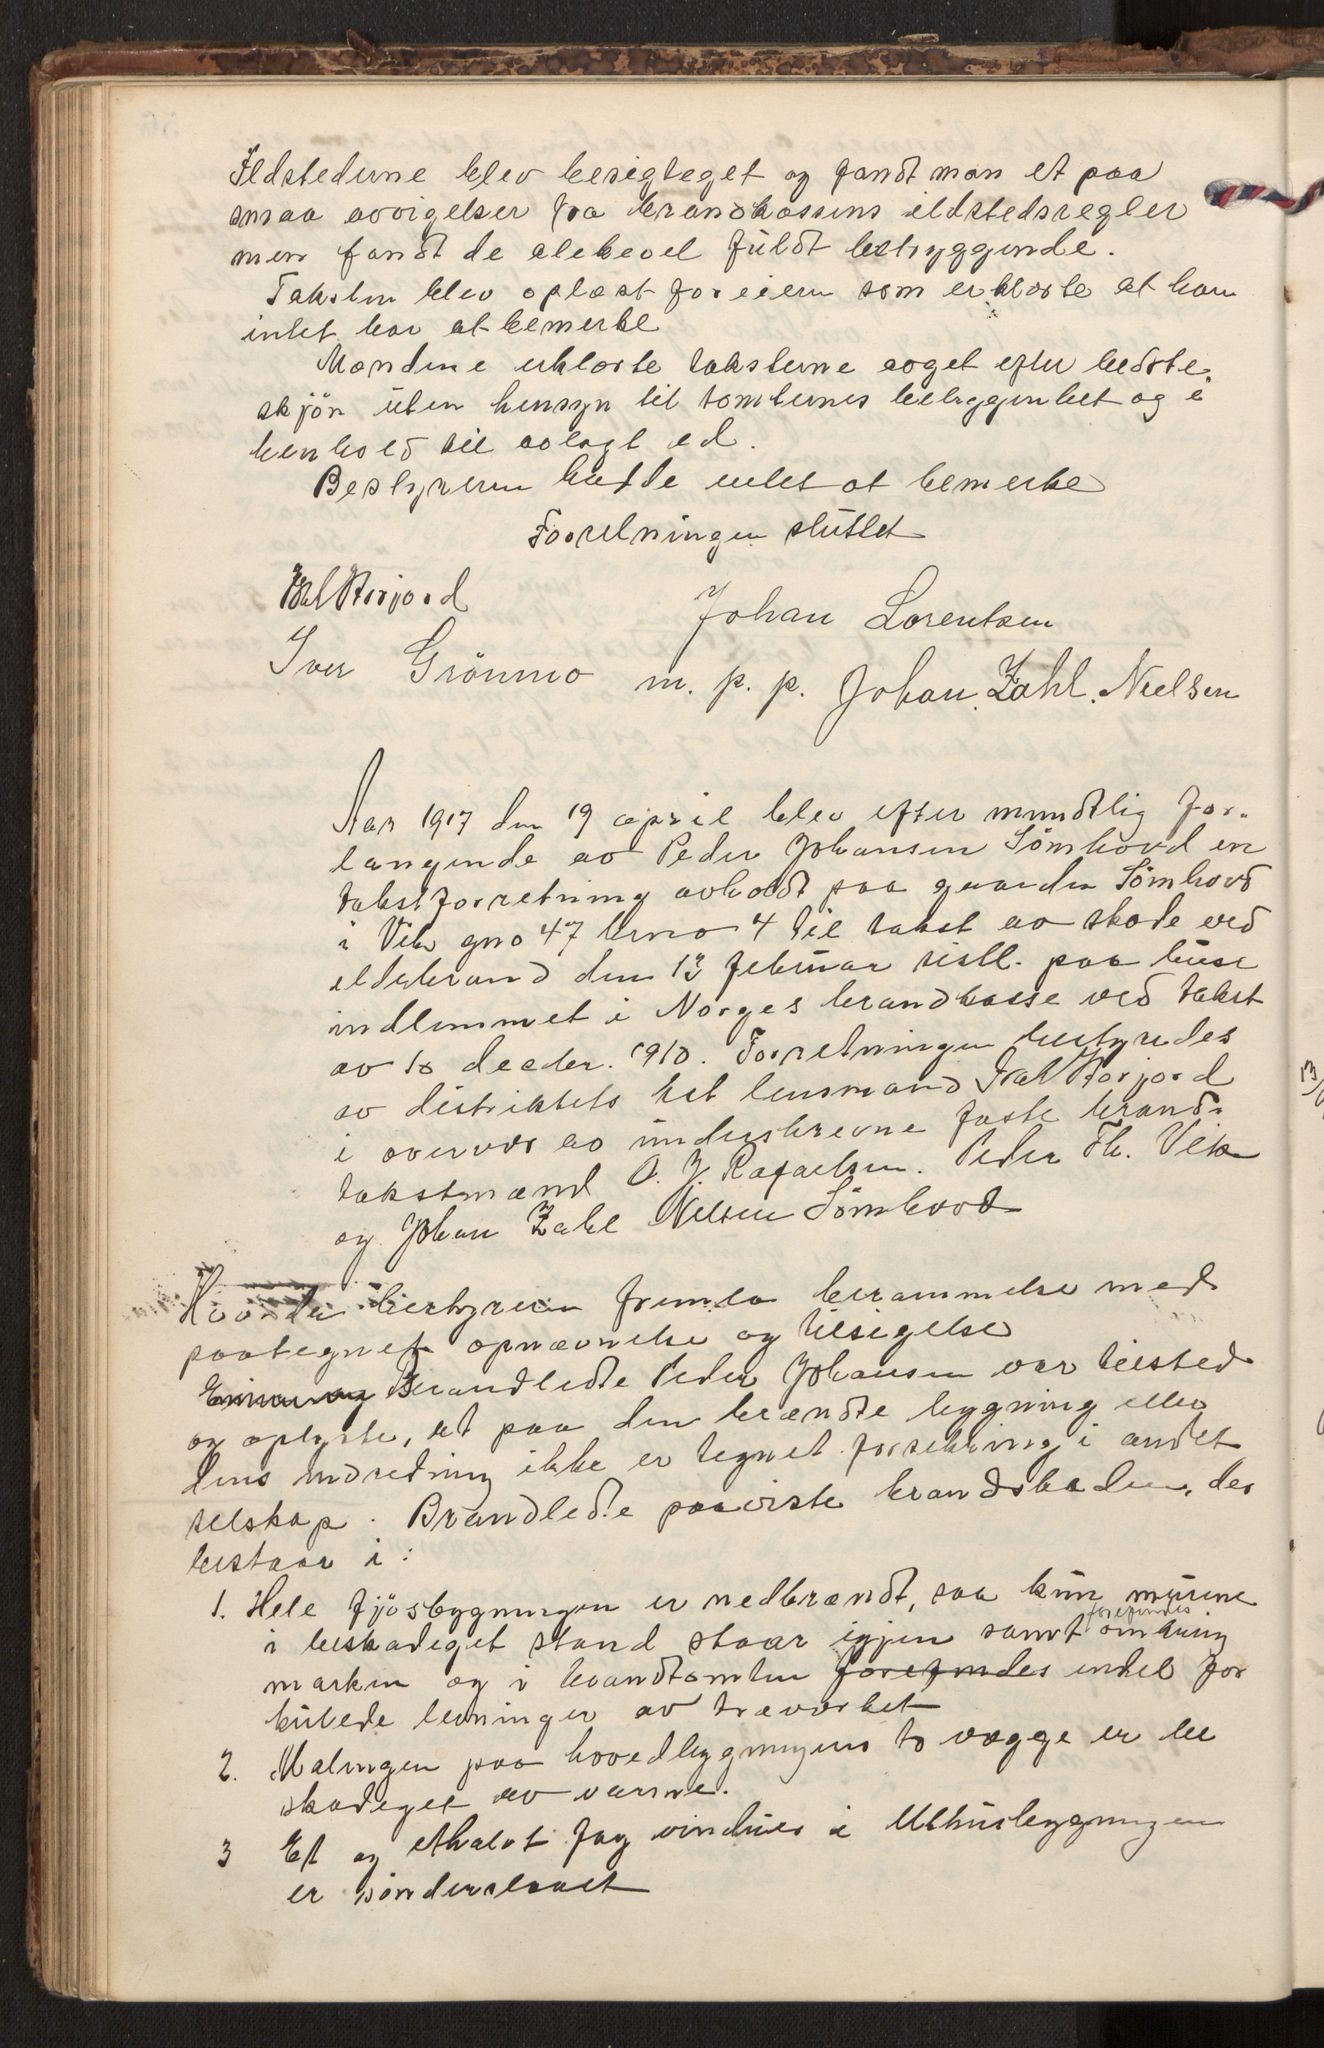 Ildstederne blev besigteget og fandt man et paa
smaa avvigelser fra brandkassens ildstedsregler
men fandt de alekevel fuldt betryggende.
Taksten blev oplæst for eieren som erklærte at han
intet har at bemerke
Mændene erklærte taksterne avget efter bedste
skjön uten hensyn til tomternes beliggenhet og i
henhold til avlagt ed.
Bestyreren hadde intet at bemerke
Forretningen sluttet
Storjord
Johan Lorentsen
Iver Grönmo m. p. p. Johan Zahl. Nielsen
Aar 1917 den 19 april blev efter mundtlig for-
langende av Peder Johansen Sömhovd en
takstforretning avholdt paa gaarden Sömhovd
i Vik gno 47 brno 4 til takst av skade ved
ildebrand den 13 februar sistl. paa huse
indlemmet i Norges brandkasse ved takst
av 10 decbr. 1910. Forretningen bestyredes
av distriktets kst lensmand Storjord
i overvær av underskrevne faste brand-
takstmænd O. J. Rafaelsen. Peder Th. Vik
og Johan Zahl Nielsen Sömhovd
Hvorda bestyreren fremla berammelse med
paategnet opnævnelse og tilsigelse
Brandledte Peder Johansen var tilsted
og oplyste, at paa den brændte bygning eller
dens indredning ikke er tegnet forsikring i andet
selskap. Brandledte paaviste brandskaden, der
bestaar i:
1. Hele fjösbygningen er nedbrændt, saa kun murene
i beskadeget stand staar igjen samt forefindes omkring
marken og i brandtomten forefindes endel for
kulede levninger av træverket
2. Malingen paa hovedbygningens to vægge er be
skadeget av varme.
3 Et og ethalvt fag vinduer i Uthusbygningen
er sönderslaaet